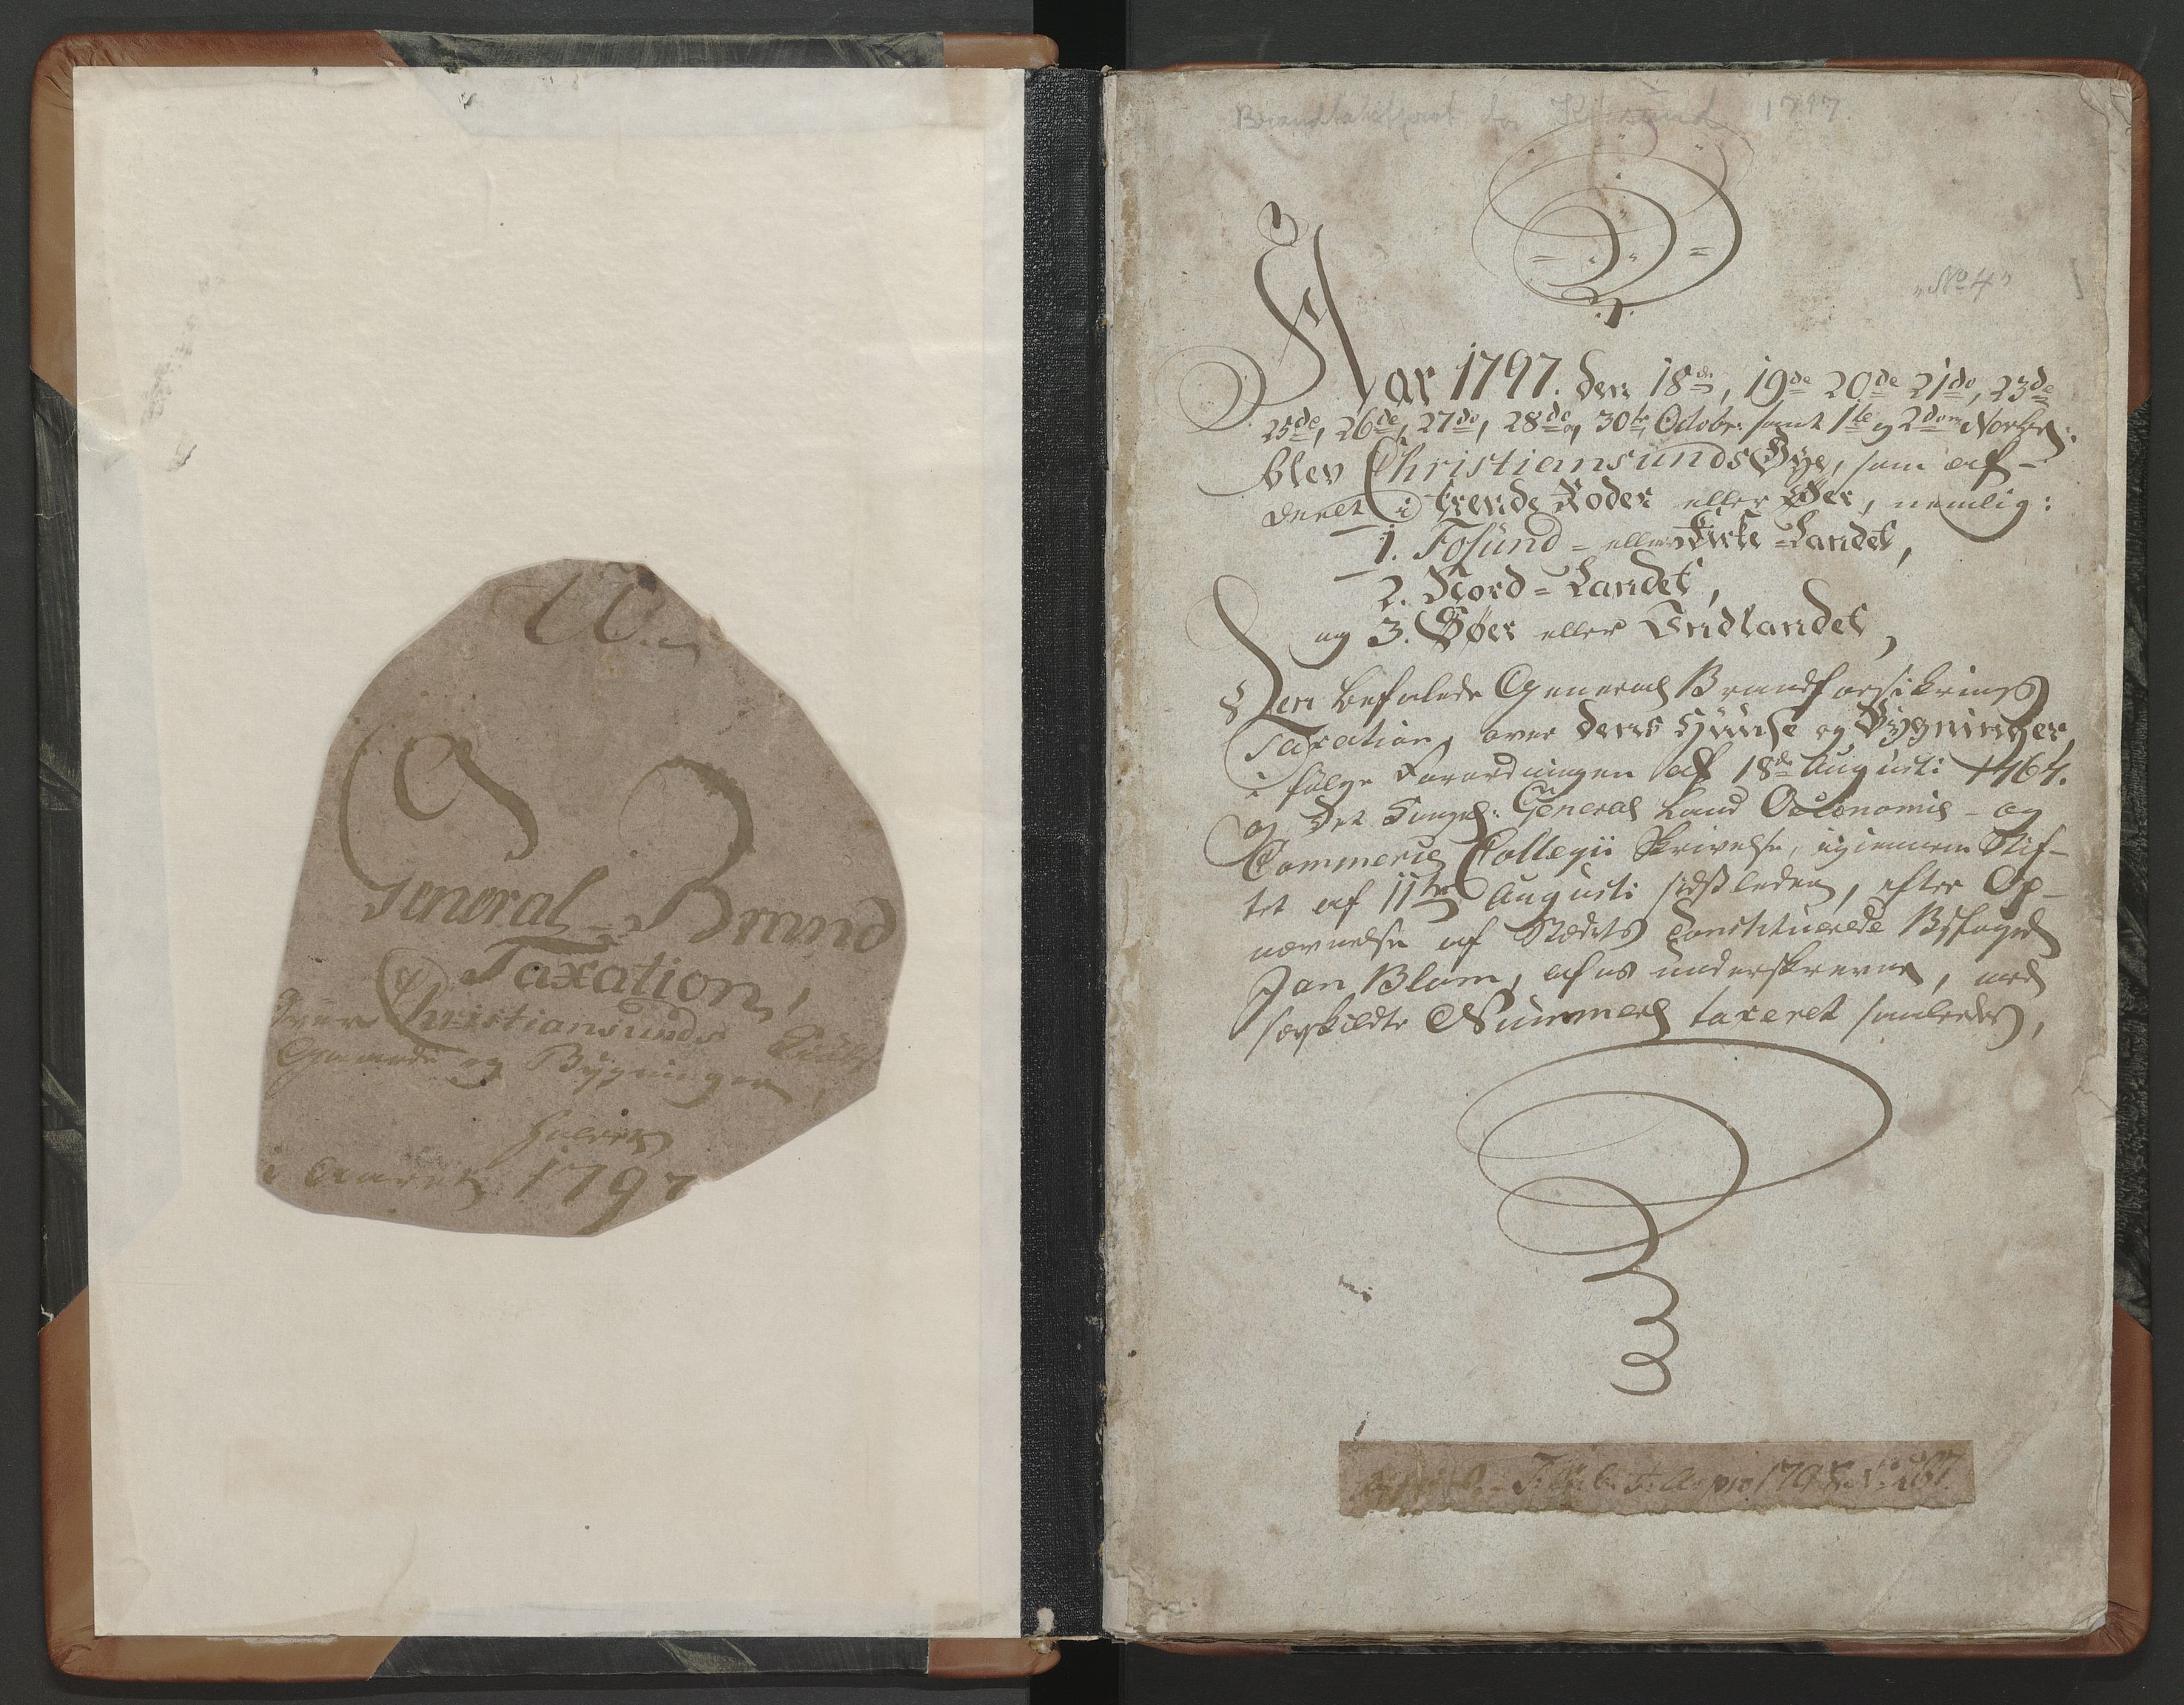 General-Brand
Taxation,
Over Christiansunds
Gaarde og Bygninger
holden
i Aaret 1797
1797
No 4
Aar 1797. den 18de, 19de 20de 21de, 23de
25de, 26de, 27de, 28de og 30te Octobr: samt 1te og 2den Novbr:
blev Christiansunds Bye, som af-
deelet i trende Roder eller Øer, nemlig:
1. Fosund- eller Kirke-Landet,
2. Nord-Landet,
og 3. Søer eller Indlandet,
Den befalede General Brandforsikrings
Taxation, over deres Huuse og Bygninger,
i følge Forordningen af 18de Augusti 1767.
og Det Kongel: General Land Oeconomie- og
Commercie Collegii Skrivelse, igiennem Stif-
tet af 11te Augusti sidstleden, efter Op-
nævnelse af Stædets Constituerede Byfoged
Jan Blom, af os underskrevne, med
særskildte Nummer taxeret saaledes,